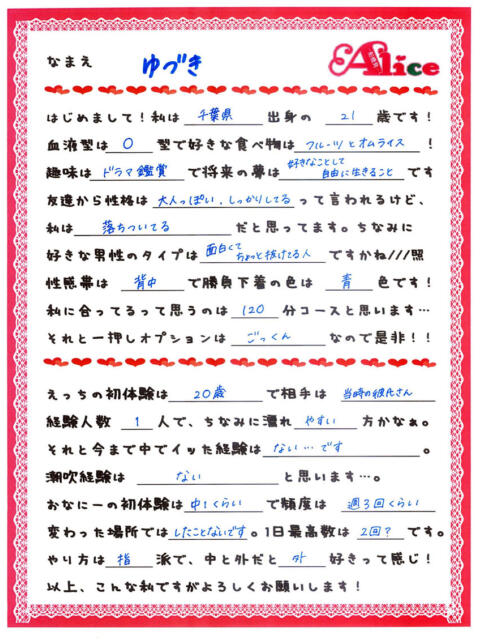 なまえ ゆづき
Alice
はじめまして！私は 千葉県 出身の 21 歳です！
血液型は O 型で好きな食べ物は フルーツとオムライス ！
趣味は ドラマ鑑賞 で将来の夢は 好きなことして自由に生きること です
友達から性格は 大人っぽい、しっかりしてる って言われるけど、
私は 落ちついてる だと思ってます。ちなみに
好きな男性のタイプは 面白くてちょっと抜けてる人 ですかね///照
性感帯は 背中 で勝負下着の色は 青 色です！
私に合ってるって思うのは 120 分コースと思います…
それと一押しオプションは ごっくん なので是非！！
えっちの初体験は 20歳 で相手は 当時の彼氏さん
経験人数 1 人で、ちなみに濡れ やすい 方かなぁ。
それと今まで中でイッた経験は ない…です 。
潮吹経験は ない と思います…。
変わった場所では したことないです 。1日最高数は 2回？ です。
やり方は 指 派で、中と外だと 外 好きって感じ！
以上、こんな私ですがよろしくお願いします！